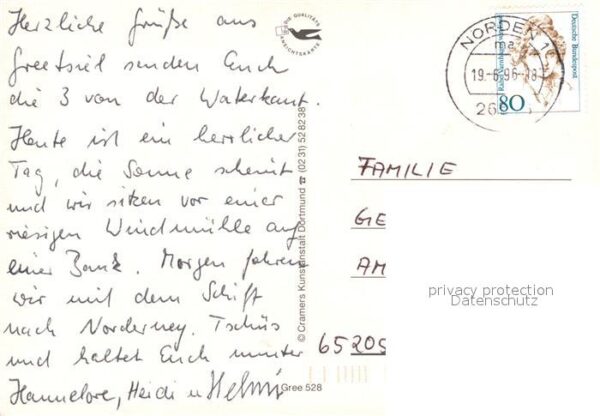 Herzliche Grüße aus
Greetsiel senden Euch
die 3 von der Waterkant.
Heute ist ein herrlicher
Tag, die Sonne scheint
und wir sitzen vor einer
riesigen Windmühle auf
einer Bank. Morgen fahren
wir mit dem Schiff
nach Norderney. Tschüs
und haltet Euch munter
Hannelore, Heidi u Helmi
DIE QUALITÄTS
ANSICHTSKARTE
© Cramers Kunstanstalt Dortmund ☎ (0231) 528238
Gree 528
NORDEN 1
ma
19.-6.96-18
26
Deutsche Bundespost
80
FAMILIE
GE
AM
65205
privacy protection
Datenschutz